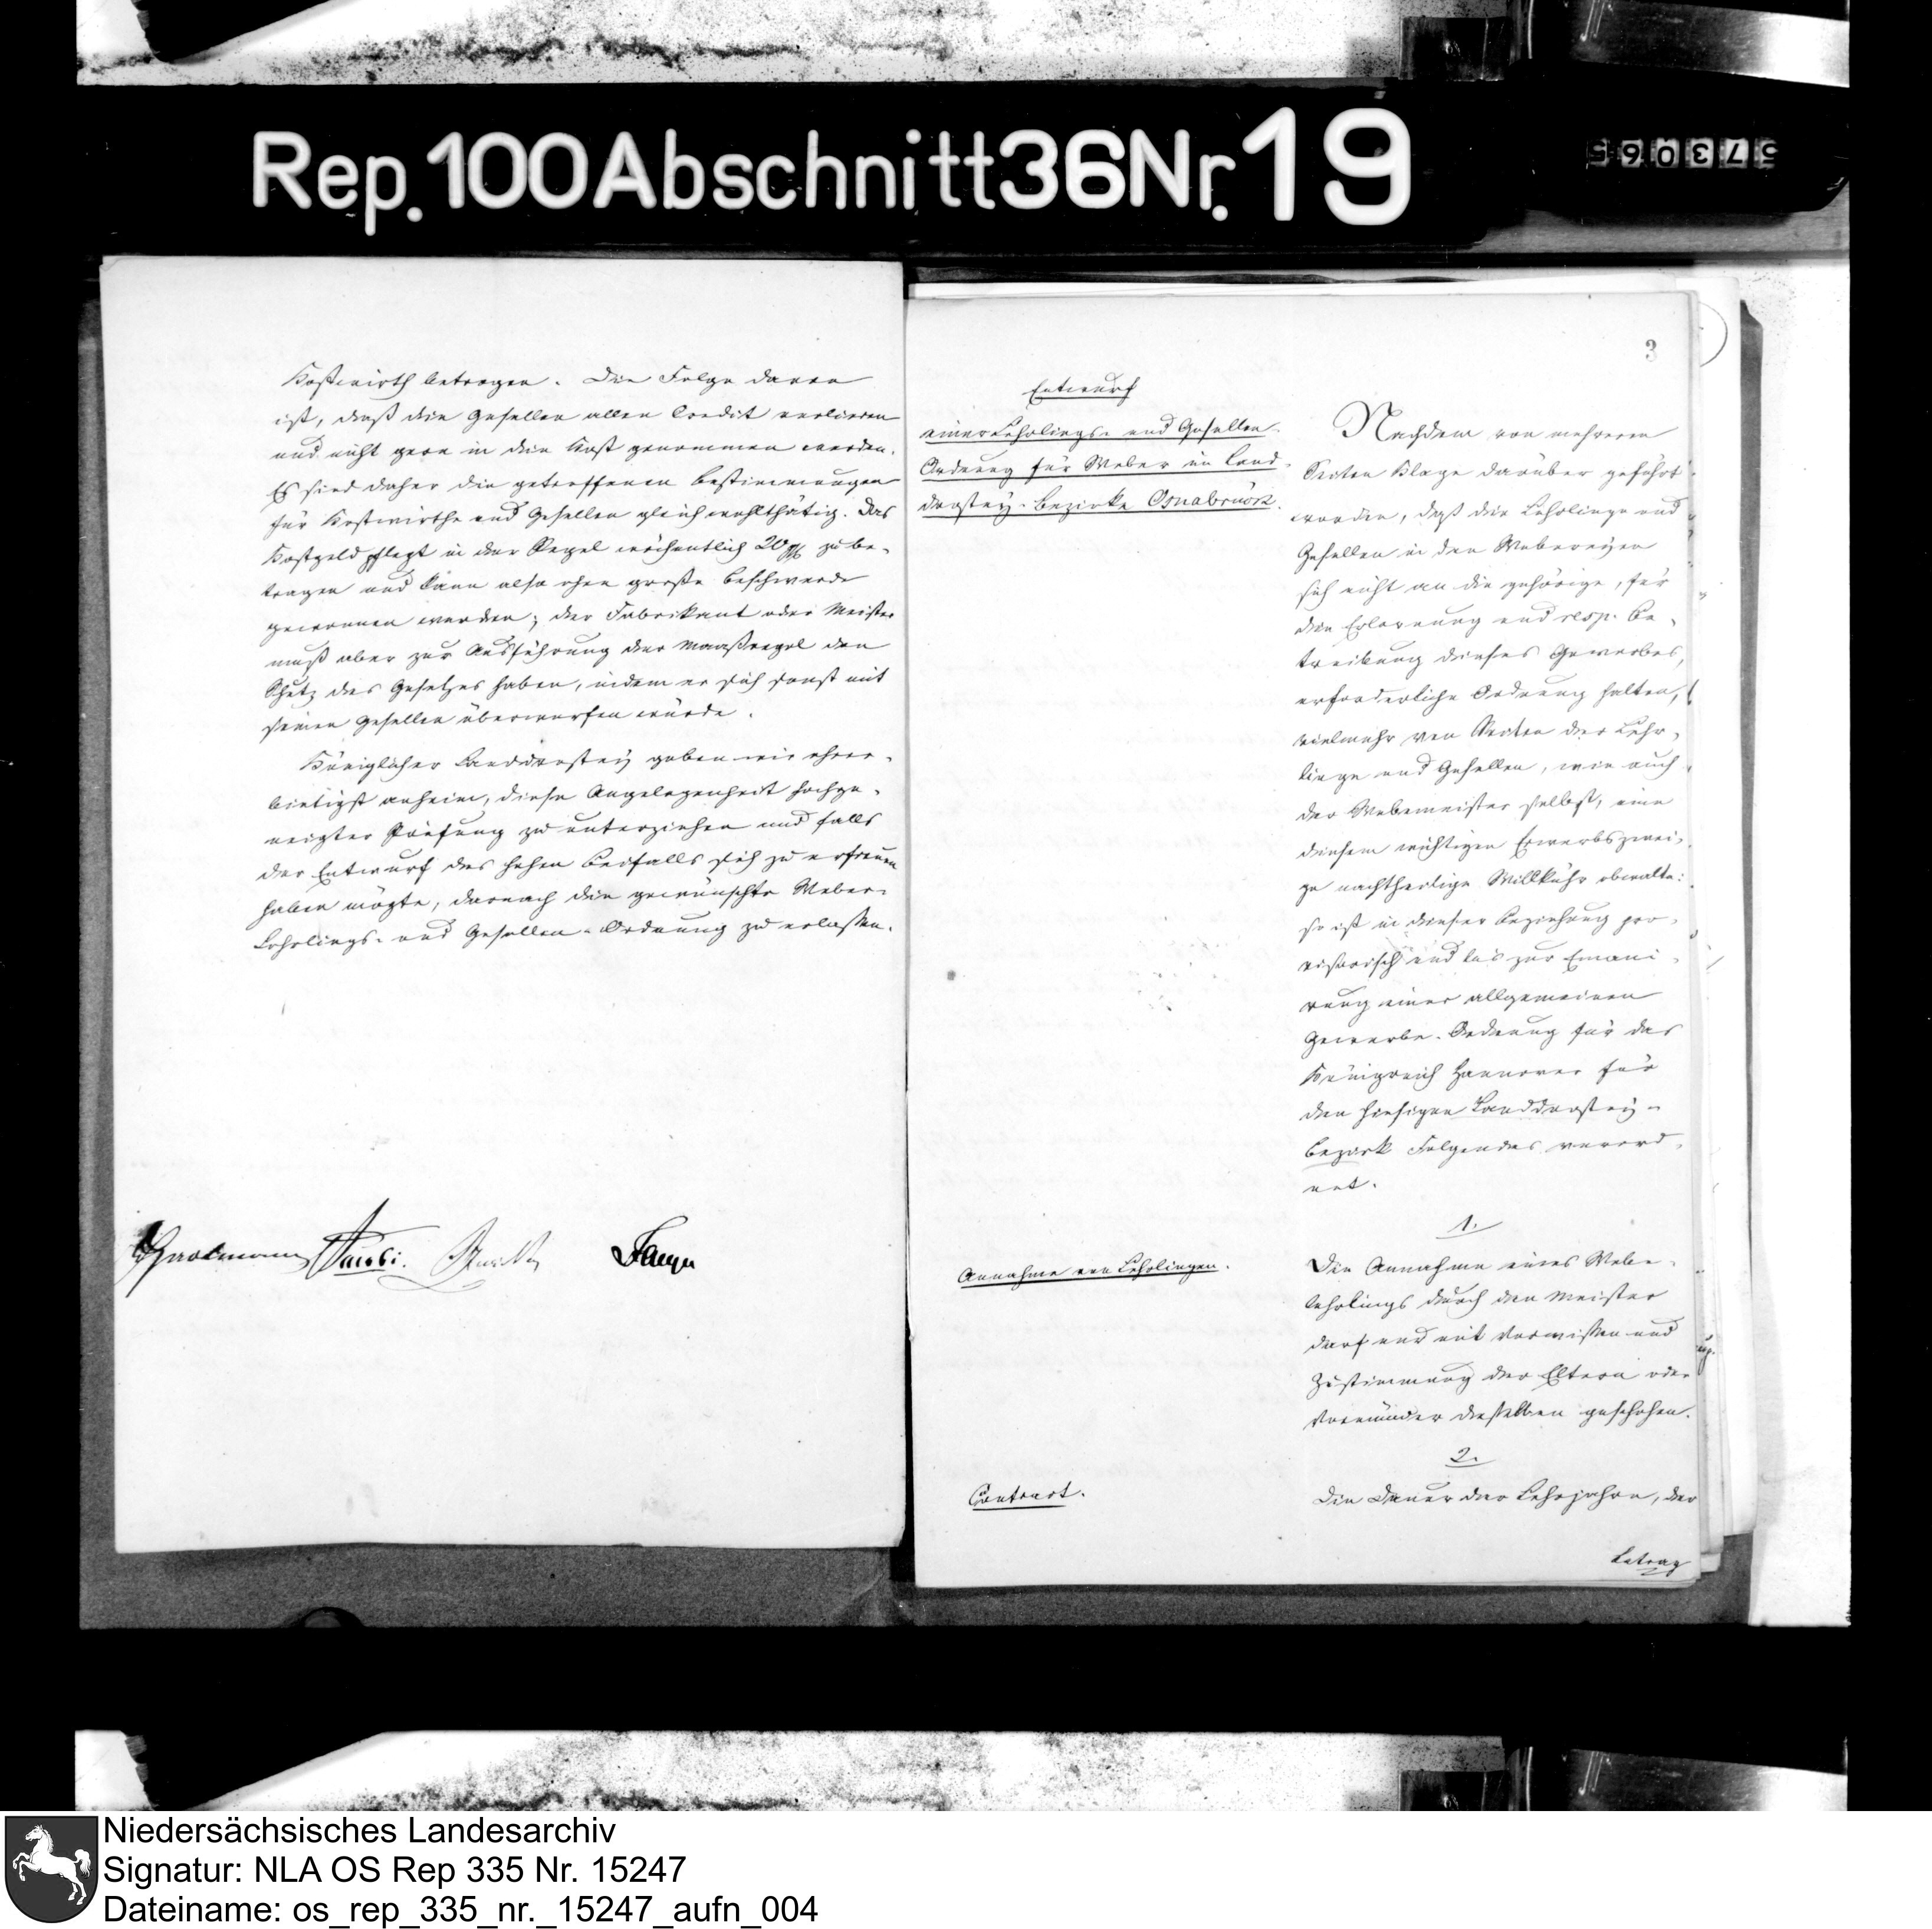 Rep. 100 Abschnitt 36 Nr. 19
573065
Kostwirth betrogen. Die Folge davon
ist, daß die Gesellen allen Credit verlieren
und nicht gern in die Kost genommen werden.
Es sind daher die getroffenen Bestimmungen
für Kostwirthe und Gesellen gleich wohlthätig. Das
Kostgeld pflegt in der Regel wöchentlich 20 zu be-
tragen und kann also ohne große Beschwerde
gewonnen werden; der Fabrikant oder Meister
muß aber zur Ausführung der Maaßregel den
Schutz des Gesetzes haben, indem er sich sonst mit
seinen Gesellen überwerfen würde.
Königlicher Landdrostey geben wir ehrer-
bietigst anheim, diese Angelegenheit hochge-
neigter Prüfung zu unterziehen und falls
der Entwurf des hohen Beifalls sich zu erfreuen
haben mögte, darnach die gewünschte Weber-
Lehrlings- und Gesellen-Ordnung zu erlassen.
Jacobi.
3
Entwurf
einer Lehrlings- und Gesellen-
Ordnung für Weber im Land-
drostey-Bezirke Osnabrück.
Nachdem von mehreren
Seiten Klage darüber geführt
worden, daß die Lehrlinge und
Gesellen in den Webereyen
sich nicht an die gehörige, für
die Erlernung und resp. Be-
treibung dieses Gewerbes,
erforderliche Ordnung halten,
vielmehr von Seiten der Lehr-
linge und Gesellen, wie auch
der Webemeister selbst, eine
diesem wichtigen Erwerbszwei-
ge nachtheilige Willkühr obwalte:
so ist in dieser Beziehung pro-
visorisch und bis zur Emani-
rung einer allgemeinen
Gewerbe-Ordnung für das
Königreich Hannover für
den hiesigen Landdrostey-
Bezirk Folgendes verord-
net.
1.
Annahme von Lehrlingen.
Die Annahme eines Webe-
lehrlings durch den Meister
darf nur mit Vorwissen und
Zustimmung der Eltern oder
Vormünder desselben geschehen.
2.
Contract.
Die Dauer der Lehrjahre, der
Betrag
Niedersächsisches Landesarchiv
Signatur: NLA OS Rep 335 Nr. 15247
Dateiname: os_rep_335_nr._15247_aufn_004